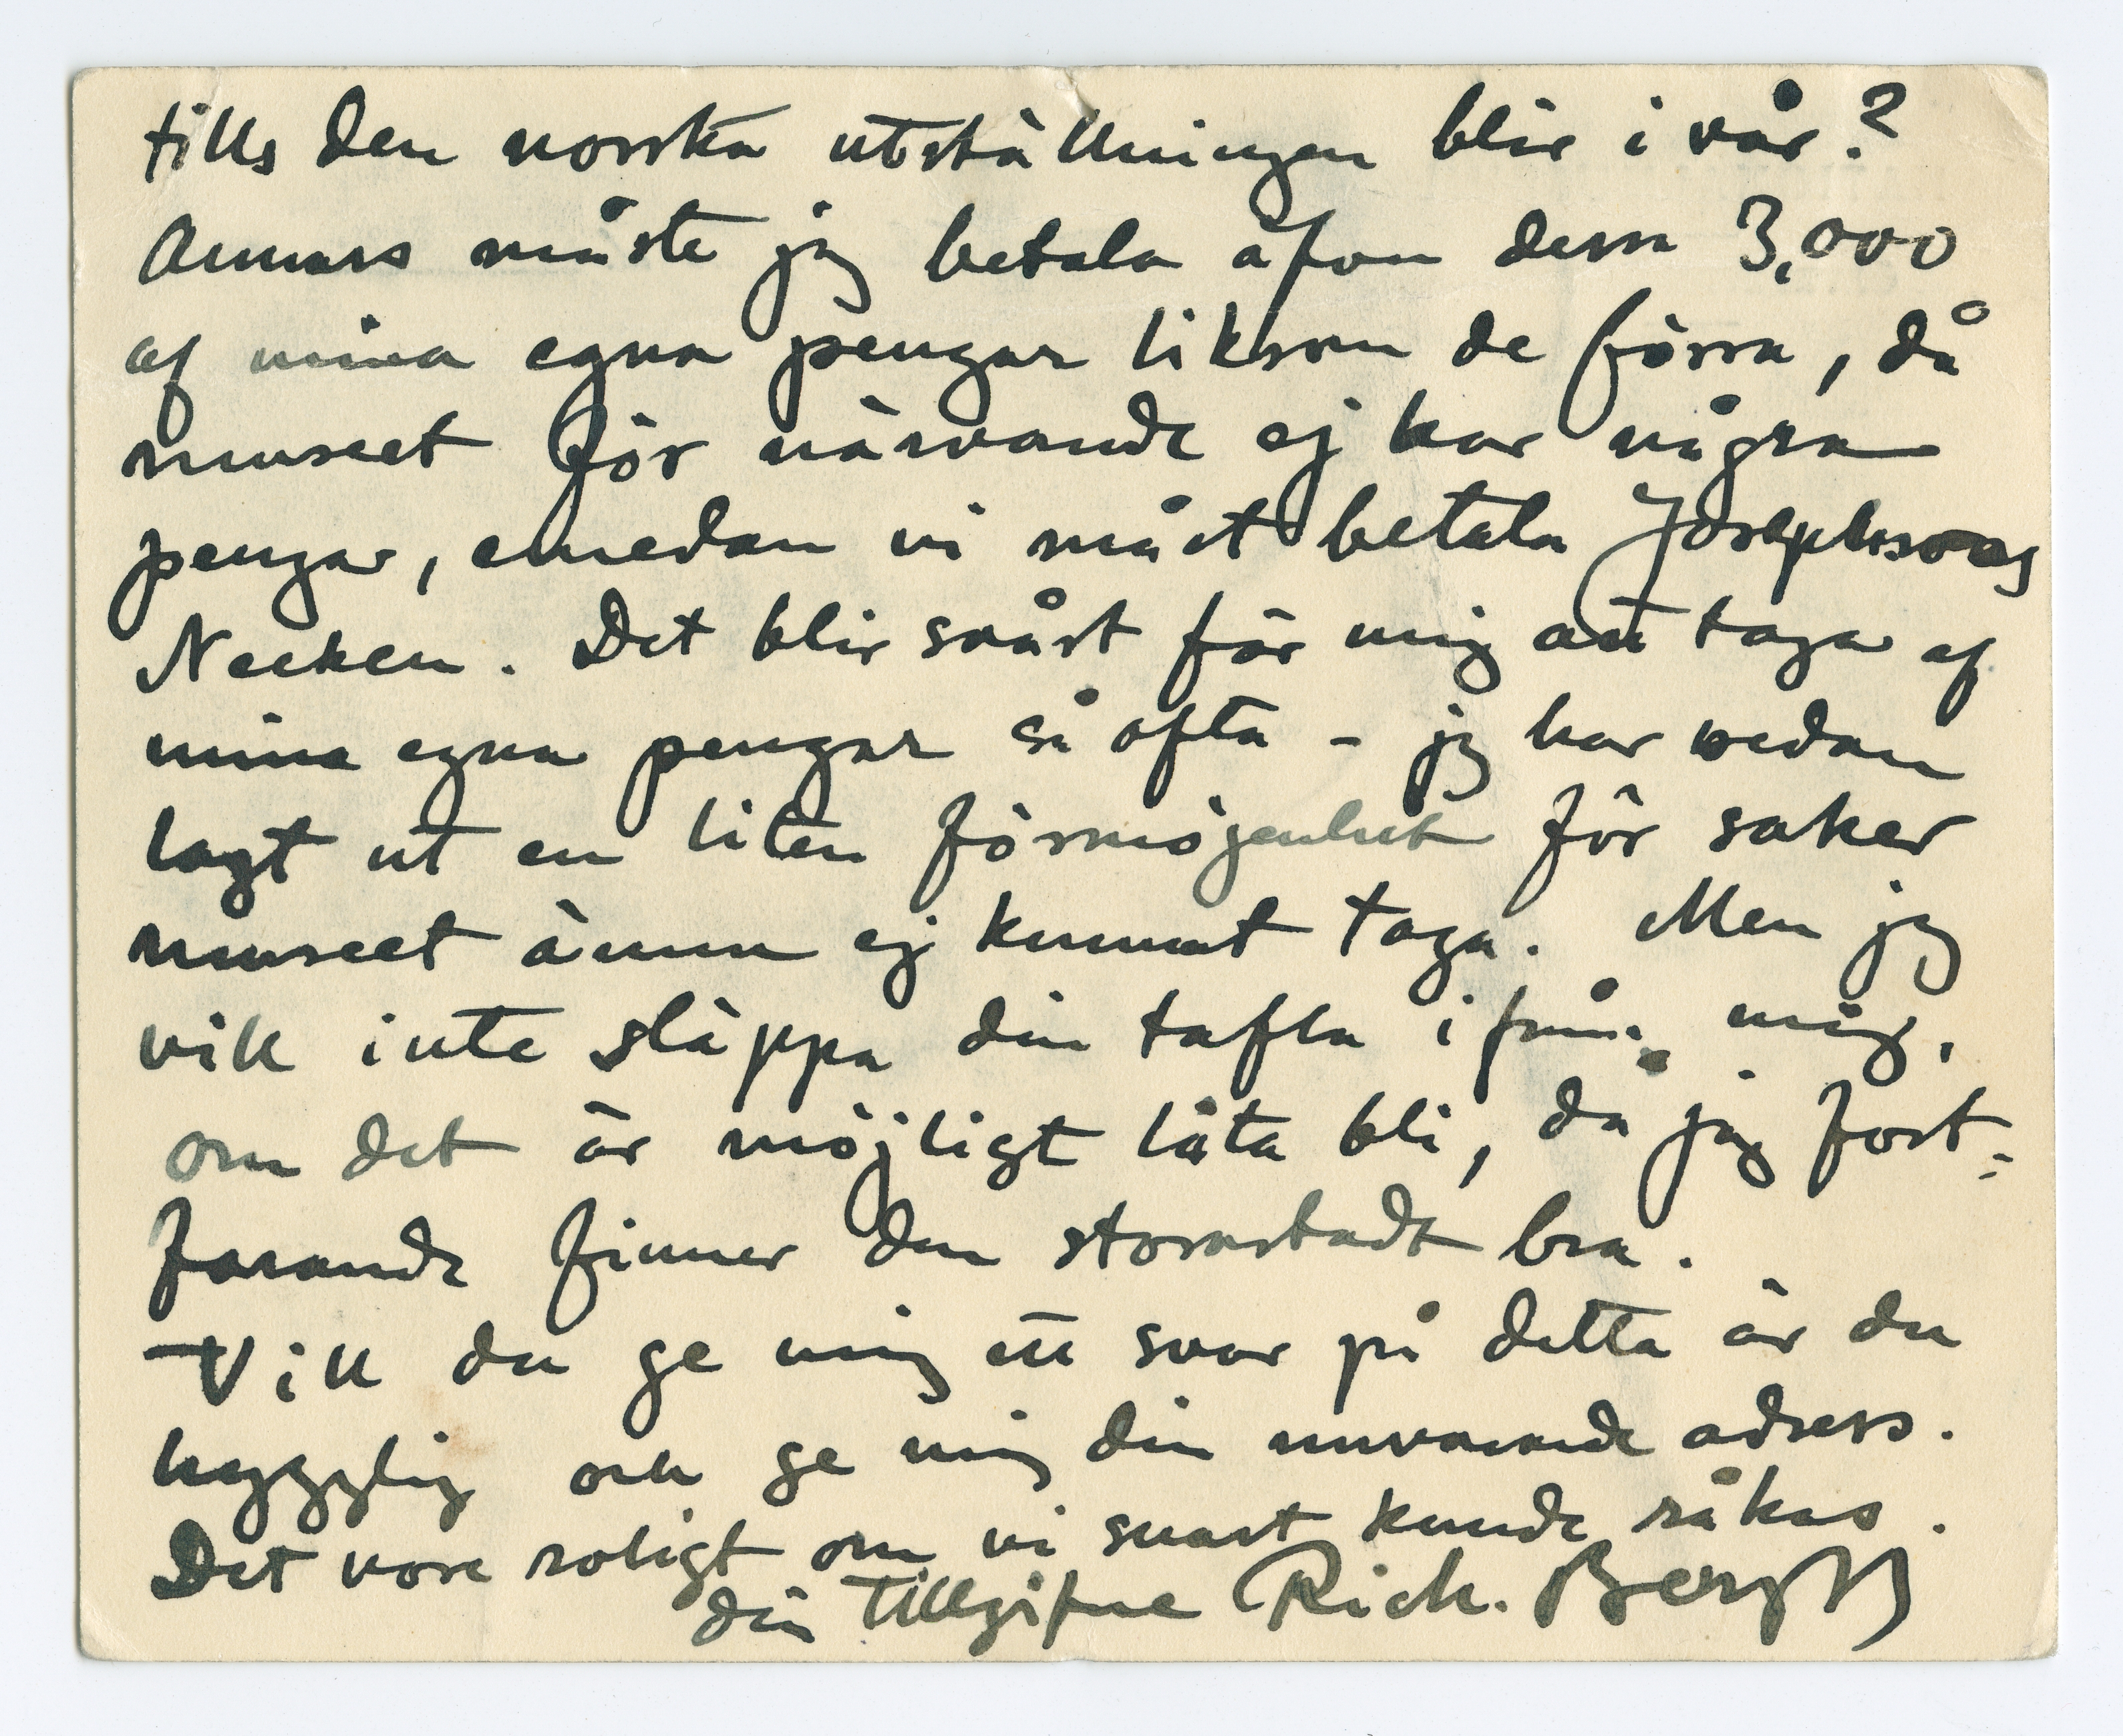 tills den norska utställningen blir i vår?
Annars måste jag betala äfven dessa 3,000
af mina egna pengar liksom de förra, då
museet för närvande ej har några
pengar, emedan vi måst betala Josephsons
Necken. Det blir svårt för mig att taga af
mina egna pengar så ofta – jag har redan
lagt ut en liten förmögenhet för saker
museet ännu ej kunnat taga. Men jag
vill inte släppa din tafla ifrån mig,
om det är möjligt låta bli, då jag fort=
farande finner den storartadt bra.
– Vill du ge mig ett svar på detta är du
hygglig och ge mig din nuvarande adress.
Det vore roligt om vi snart kunde råkas.
din tillgifne Rich. Bergh